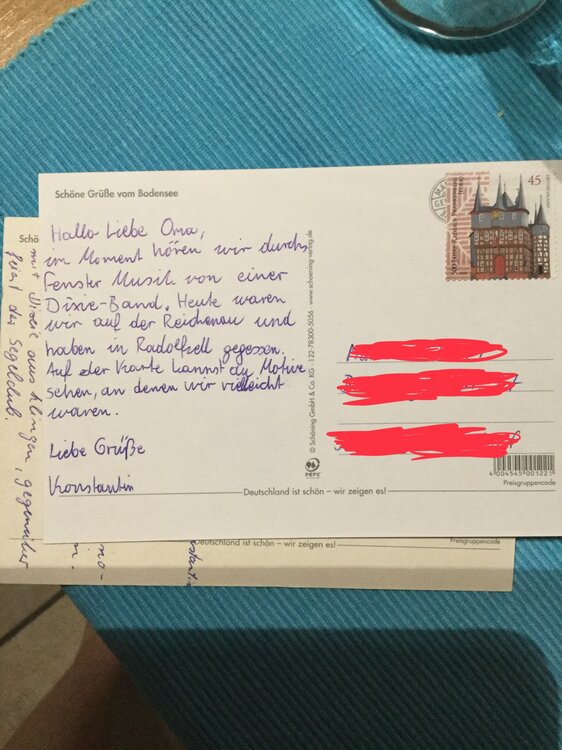 Schöne Grüße vom Bodensee
45
DEUTSCHLAND
Hallo Liebe Oma,
im Moment hören wir durchs
Fenster Musik von einer
Dixie-Band. Heute waren
wir auf der Reichenau und
haben in Radolfzell gegessen.
Auf der Karte kannst du Motive
sehen, an denen wir vielleicht
waren.
Liebe Grüße
Konstantin
© Schöning GmbH & Co. KG · 122-78300-5056 · www.schoening-verlag.de
PEFC
4 004545 001221
Preisgruppencode
Deutschland ist schön – wir zeigen es!
Schö
mit Dixie aus klingen, gegenüber
feiert der Segelclub.
Deutschland ist schön – wir zeigen es!
Preisgruppencode